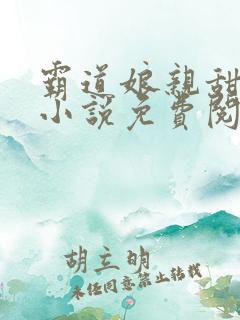 霸道娘亲甜
小说免费阅
胡立明
未经同意禁止转载